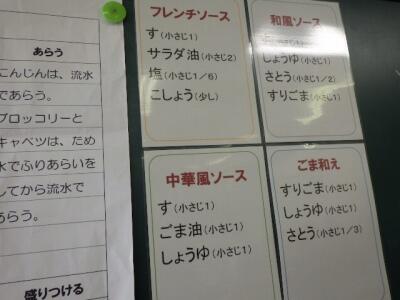 あらう
こんじんは、流水
であらう。
ブロッコリーと
キャベツは、ため
水でふりあらいを
してから流水で
あらう。
盛りつける
フレンチソース
す(小さじ1)
サラダ油(小さじ2)
塩(小さじ1/6)
こしょう(少し)
和風ソース
しょうゆ(小さじ1)
さとう(小さじ1/2)
すりごま(小さじ1)
中華風ソース
す(小さじ1)
ごま油(小さじ1)
しょうゆ(小さじ1)
ごま和え
すりごま(小さじ1)
しょうゆ(小さじ1)
さとう(小さじ1/3)